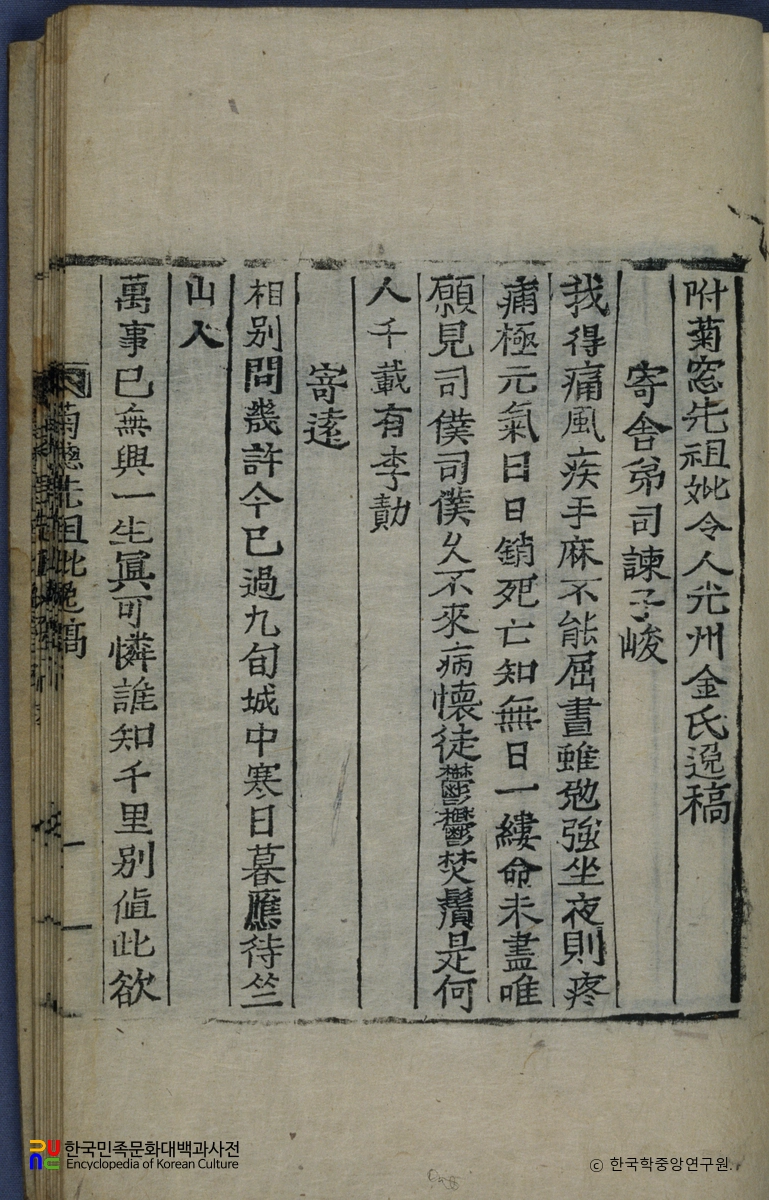 附菊窓先祖妣令人光州金氏逸稿
寄舍弟司諫子峻
我得痛風疾手麻不能屈晝雖勉強坐夜則疼
痛極元氣日日銷死亡知無日一縷命未盡唯
願見司僕司僕久不來病懷徒鬱鬱焚鬚是何
人千載有李勣
寄遠
相別問幾許今已過九旬城中寒日暮應待竺
山人
萬事已無興一生眞可憐誰知千里別値此欲
菊窓先祖妣逸稿
一
한국민족문화대백과사전
Encyclopedia of Korean Culture
© 한국학중앙연구원.